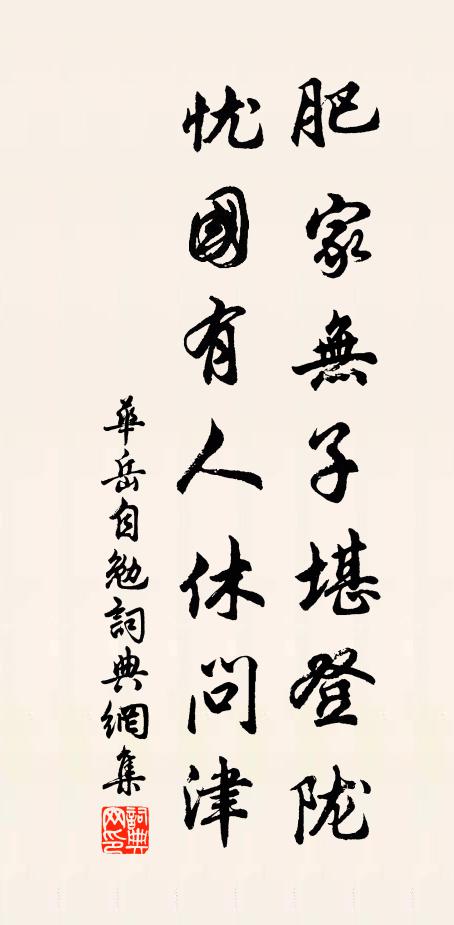 肥家無子堪登陇
忧國有人休問津
華岳自勉詞典網集
詞典网印